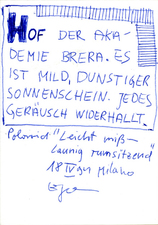 HOF DER AKA-
DEMIE BRERA. ES
IST MILD, DUNSTIGER
SONNENSCHEIN. JEDES
GERÄUSCH WIDERHALLT.
"Leicht miß-
launig rumsitzend"
18 IV 94 Milano